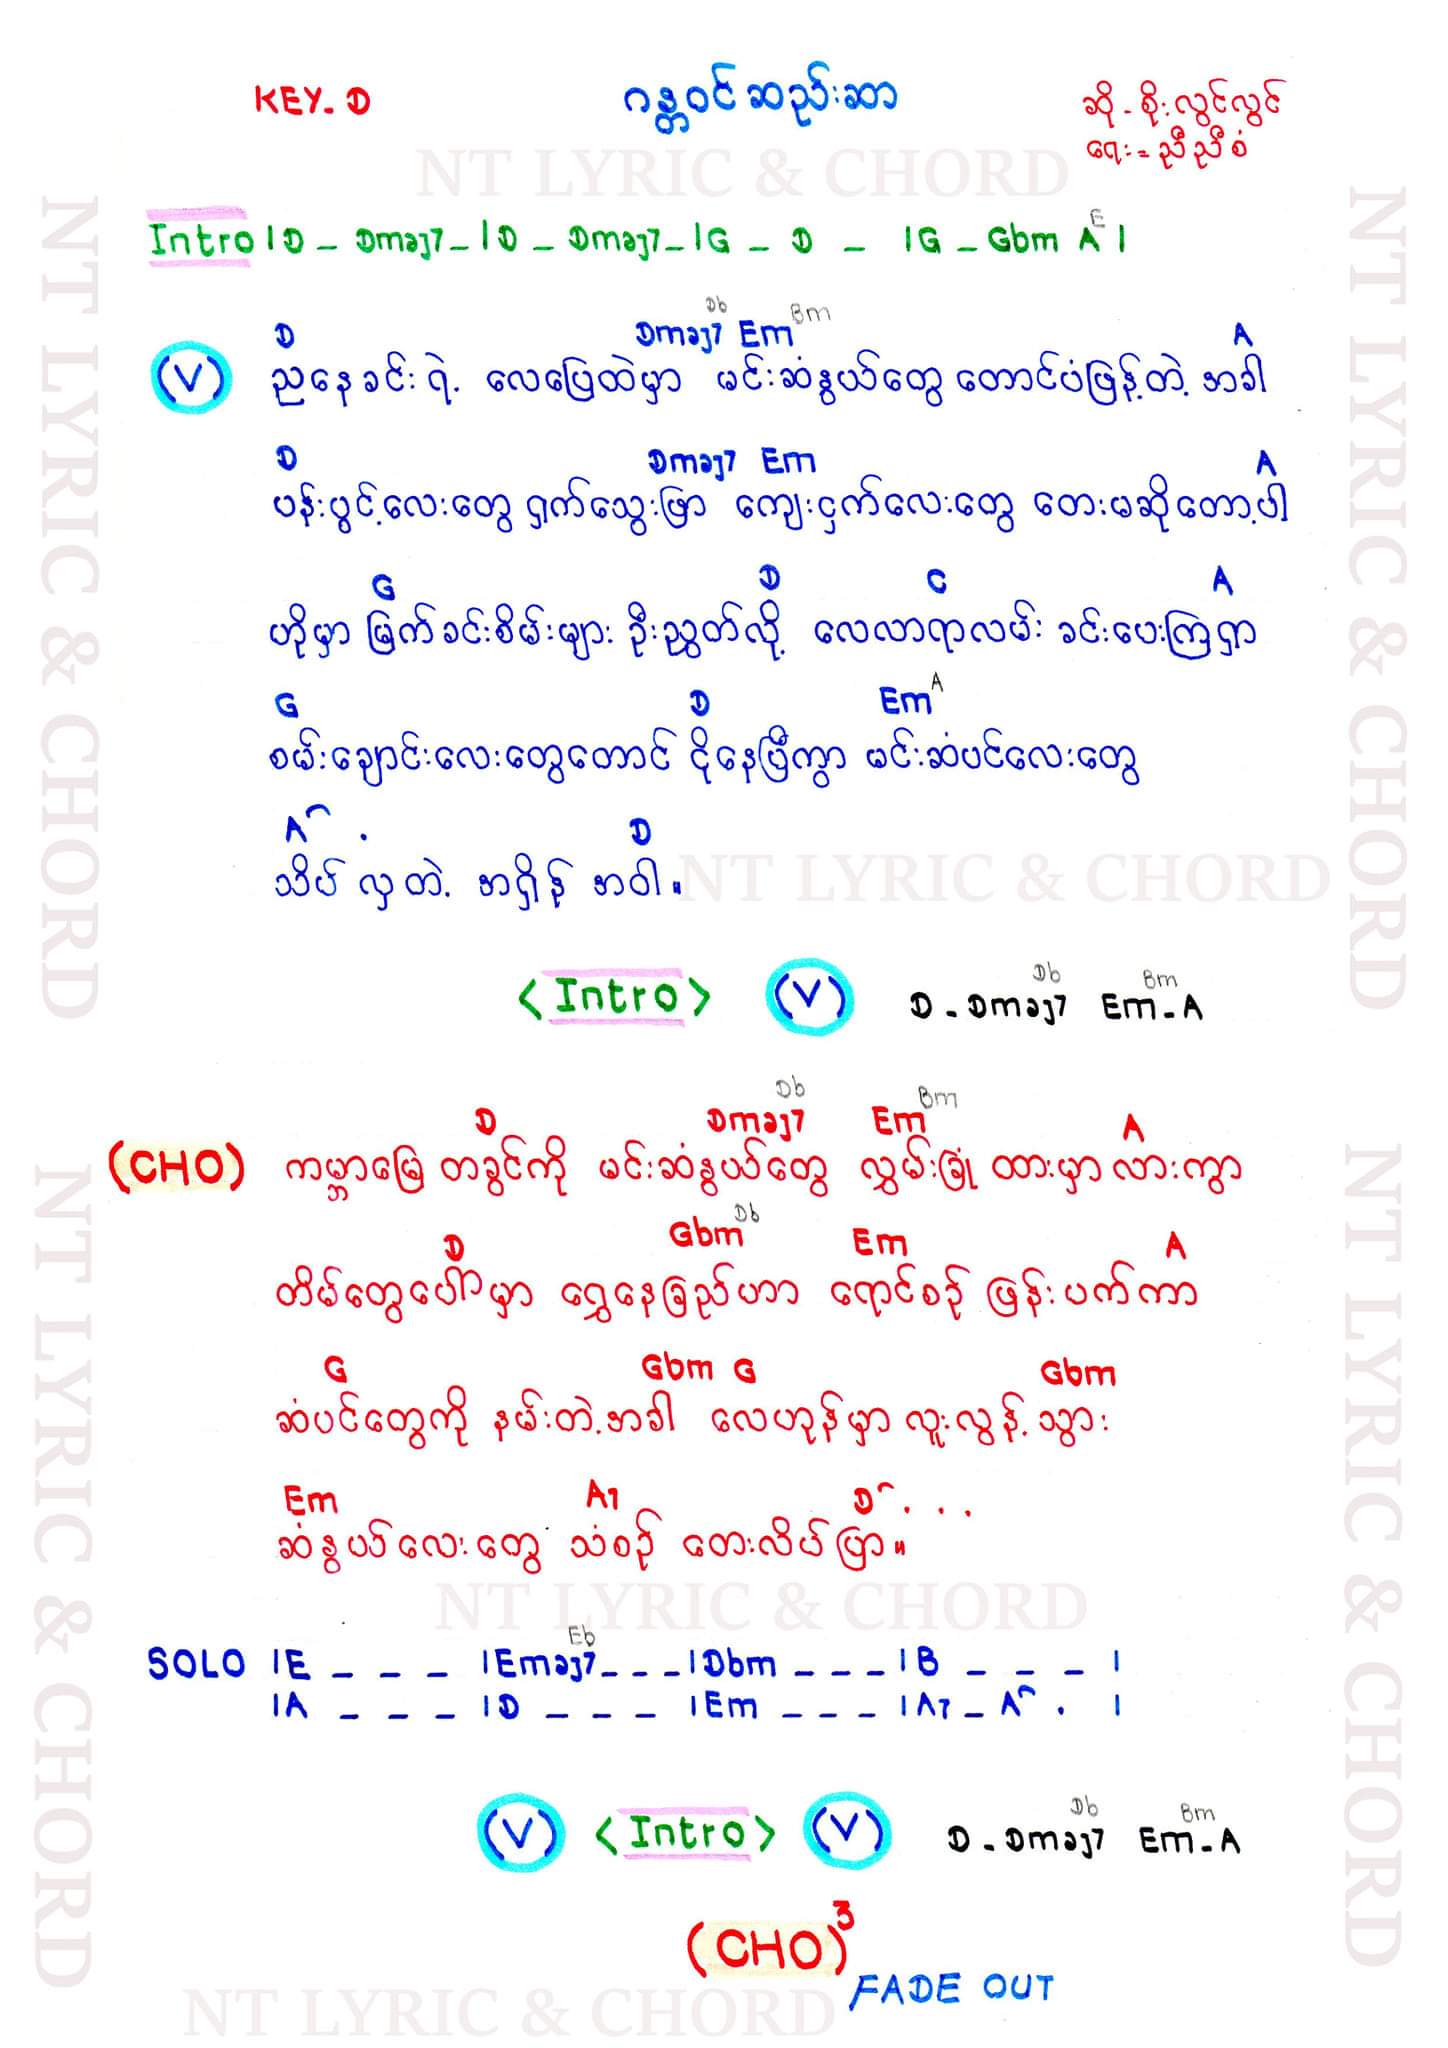 KEY-D
ဂန္တဝင်ဆည်းဆာ
ဆို - စိုးလွင်လွင်
ရေး = ညီညီစံ
NT LYRIC & CHORD
Intro | D - Dmaj7 - | D - Dmaj7 - | G - D - | G - Gbm A E |
D Dmaj7 Db Em Bm A
(V) ညနေခင်းရဲ့ လေပြေထဲမှာ မင်းဆံနွယ်တွေ တောင်ပံဖြန့်တဲ့ အခါ
D Dmaj7 Em A
ပန်းပွင့်လေးတွေ ရှက်သွေးဖြာ ကျေးငှက်လေးတွေ တေးမဆိုတော့ပါ
G D C A
ဟိုမှာ မြက်ခင်းစိမ်းများ ဦးညွှတ်လို့ လေလာရာလမ်း ခင်းပေးကြရှာ
G D Em A
စမ်းချောင်းလေးတွေတောင် ငိုနေပြီကွာ မင်းဆံပင်လေးတွေ
A . D
သိပ် လှတဲ့ အရှိန် အဝါ။
NT LYRIC & CHORD
<Intro> (V) D - Dmaj7 Db Em Bm - A
D Dmaj7 Db Em Bm A
(CHO) ကမ္ဘာမြေ တခွင်ကို မင်းဆံနွယ်တွေ လွှမ်းခြုံ ထားမှာ လားကွာ
D Gbm Db Em A
တိမ်တွေပေါ်မှာ ရွှေနေခြည်ဟာ ရောင်စဉ် ဖြန်းပက်ကာ
G Gbm G Gbm
ဆံပင်တွေကို နမ်းတဲ့အခါ လေဟုန်မှာ လူးလွန့် သွား
Em A7 D . . .
ဆံနွယ်လေးတွေ သံစဉ် တေးလိပ်ပြာ။
NT LYRIC & CHORD
SOLO | E - - - | Emaj7 Eb - - - | Dbm - - - | B - - - |
| A - - - | D - - - | Em - - - | A7 - A . |
(V) <Intro> (V) D - Dmaj7 Db Em Bm - A
(CHO)3
FADE OUT
NT LYRIC & CHORD
NT LYRIC & CHORD
NT LYRIC & CHORD
NT LYRIC & CHORD
NT LYRIC & CHORD